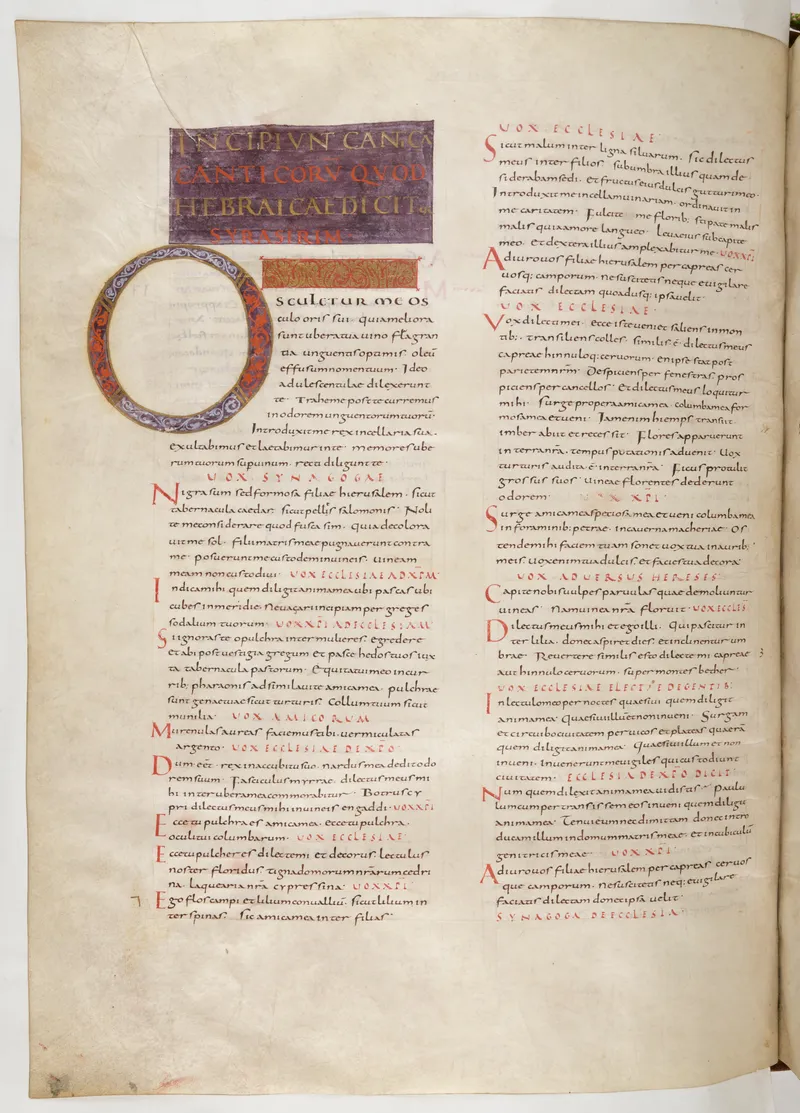 INCIPIUNT CANTICA
CANTICORU QUOD
HEBRAICAE DICITUR
SYRASIRIM
OSCULETUR ME OS
culo oris sui· quia meliora
sunt ubera tua uino flagran
tia unguentis optimis· oleū
effusum nomen tuum· Ideo
adulescentulae dilexerunt
te· Trahe me post te curremus
in odorem unguentorum tuorū·
Introduxit me rex in cellaria sua·
exultabimus et laetabimur in te· memores ube
rum tuorum super uinum· recti diligunt te·
UOX SYNAGOGAE
Nigra sum sed formosa filiae hierusalem· sicut
tabernacula caedar· sicut pellis salomonis· Noli
te me considerare quod fusca sim· quia decolora
uit me sol· filii matris meae pugnauerunt contra
me· posuerunt me custodem in uineis· uineam
meam non custodiui· UOX ECCLESIAE AD XPM
Indica mihi quem diligit anima mea ubi pascas ubi
cubes in meridie· ne uagari incipiam per greges
sodalium tuorum· UOX XPI AD ECCLESIAM
Si ignoras te o pulchra inter mulieres· egredere
et abi post uestigia gregum et pasce hedos tuos iux
ta tabernacula pastorum· Equitatui meo in cur
rib; pharaonis adsimilaui te amica mea· pulchrae
sunt genae tuae sicut turturis· Collum tuum sicut
munilia· UOX AMICORUM
Murenulas aureas faciemus tibi uermiculatas
argento· UOX ECCLESIAE DE XPO
Dum eēt· rex in accubitu suo· nardus mea dedit odo
rem suum· Fasciculus myrrae· dilectus meus mi
hi inter ubera mea commorabitur· Botrus cy
pri dilectus meus mihi in uineis engaddi· UOX XPI
Ecce tu pulchra es amica mea· ecce tu pulchra·
oculi tui columbarum· UOX ECCLESIAE
Ecce tu pulcher es dilecte mi et decorus· lectulus
noster floridus tigna domorum nrārum cedri
na· laquearia nrā cypressina UOX XPI
Ego flos campi et lilium conualliū· sicut lilium in
ter spinas· sic amica mea inter filias·
UOX ECCLESIAE
Sicut malum inter ligna siluarum· sic dilectus
meus inter filios· sub umbra illius quam de
sideraba sedi· et fructus eius dulcis gutturi meo·
Introduxit me in cellam uinariam· ordinauit in
me caritatem· Fulcite me florib; stipate malis
malis quia amore langueo· Leua eius sub capite
meo· et dextera illius amplexabitur me· UOX XPI
Adiuro uos filiae hierusalem per capreas cer
uosq; camporum· ne suscitetis neque euigilare
faciatis dilectam quoadusq; ipsa uelit·
UOX ECCLESIAE
Vox dilecti mei· ecce iste uenit saliens in mon
tib;· transiliens colles· similis ē dilectus meus
capreae hinnuloq; ceruorum· en ipse stat post
parietem nrm· Despiciens per fenestras· pros
piciens per cancellos· Et dilectus meus loquitur
mihi· Surge propera amica mea· columba mea for
mosa mea et ueni· Iam enim hiemps transiit
imber abiit et recessit· Flores apparuerunt
in terra nrā· tempus putationis aduenit· Uox
turturis audita ē in terra nrā· Ficus protulit
grossus suos· Uineae florentes dederunt
odorem· UOX XPI
Surge amica mea speciosa mea et ueni columba mea
in foraminib; petrae· in cauerna maceriae· Os
tende mihi faciem tuam sonet uox tua in aurib;
meis uox enim tua dulcis et facies tua decora·
UOX ADUERSUS HERESES
Capite nobis uulpes paruulas quae demoliuntur
uineas· Nam uinea nrā floruit· UOX ECCLES
Dilectus meus mihi et ego illi· Qui pascitur in
ter lilia· donec aspiret dies· et inclinentur um
brae· Reuertere similis esto dilecte mi capreae
aut hinnulo ceruorum· super montes bether·
UOX ECCLESIAE ELECTAE DE GENTIB;
In lectulo meo per noctes quaesiui quem diligit
anima mea· Quaesiui illum et non inueni· Surgam
et circuibo ciuitatem per uicos et plateas quaerā
quem diligit anima mea· Quaesiui illum et non
inueni· Inuenerunt me uigiles qui custodiunt
ciuitatem· ECCLESIA DE XPO DICIT
Num quem dilexit anima mea uidistis· Paulu
lum cum pertransissem eos inueni quem diligit
anima mea· Tenui eum nec dimittam donec intro
ducam illum in domum matris meae· et in cubiculū
genitricis meae· UOX XPI
Adiuro uos filiae hierusalem per capreas ceruos
que camporum· ne suscitetis neq; euigilare
faciatis dilectam donec ipsa uelit·
SYNAGOGA DE ECCLESIA